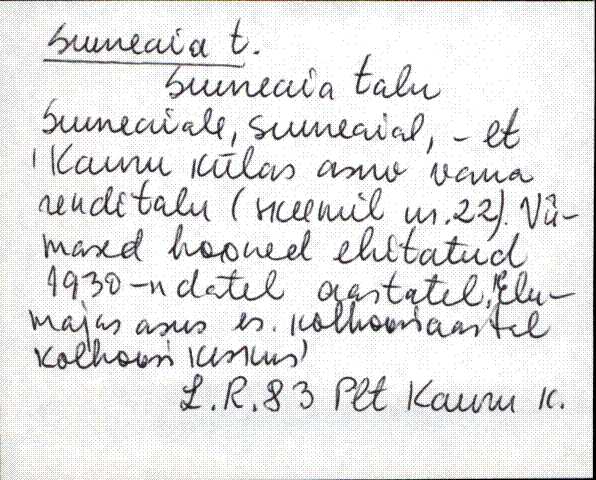 Suineaia t.
Suineaia talu
Suineaiale, Suineaial, -et
'Kauru külas asuv vana
renditalu (skeemil nr.22). Vii-
mased hooned ehitatud
1930-ndatel aastatel. Elu-
majas asus es. kolhoosiaastel
kolhoosi keskus'
L.R.83 Plt Kauru k.